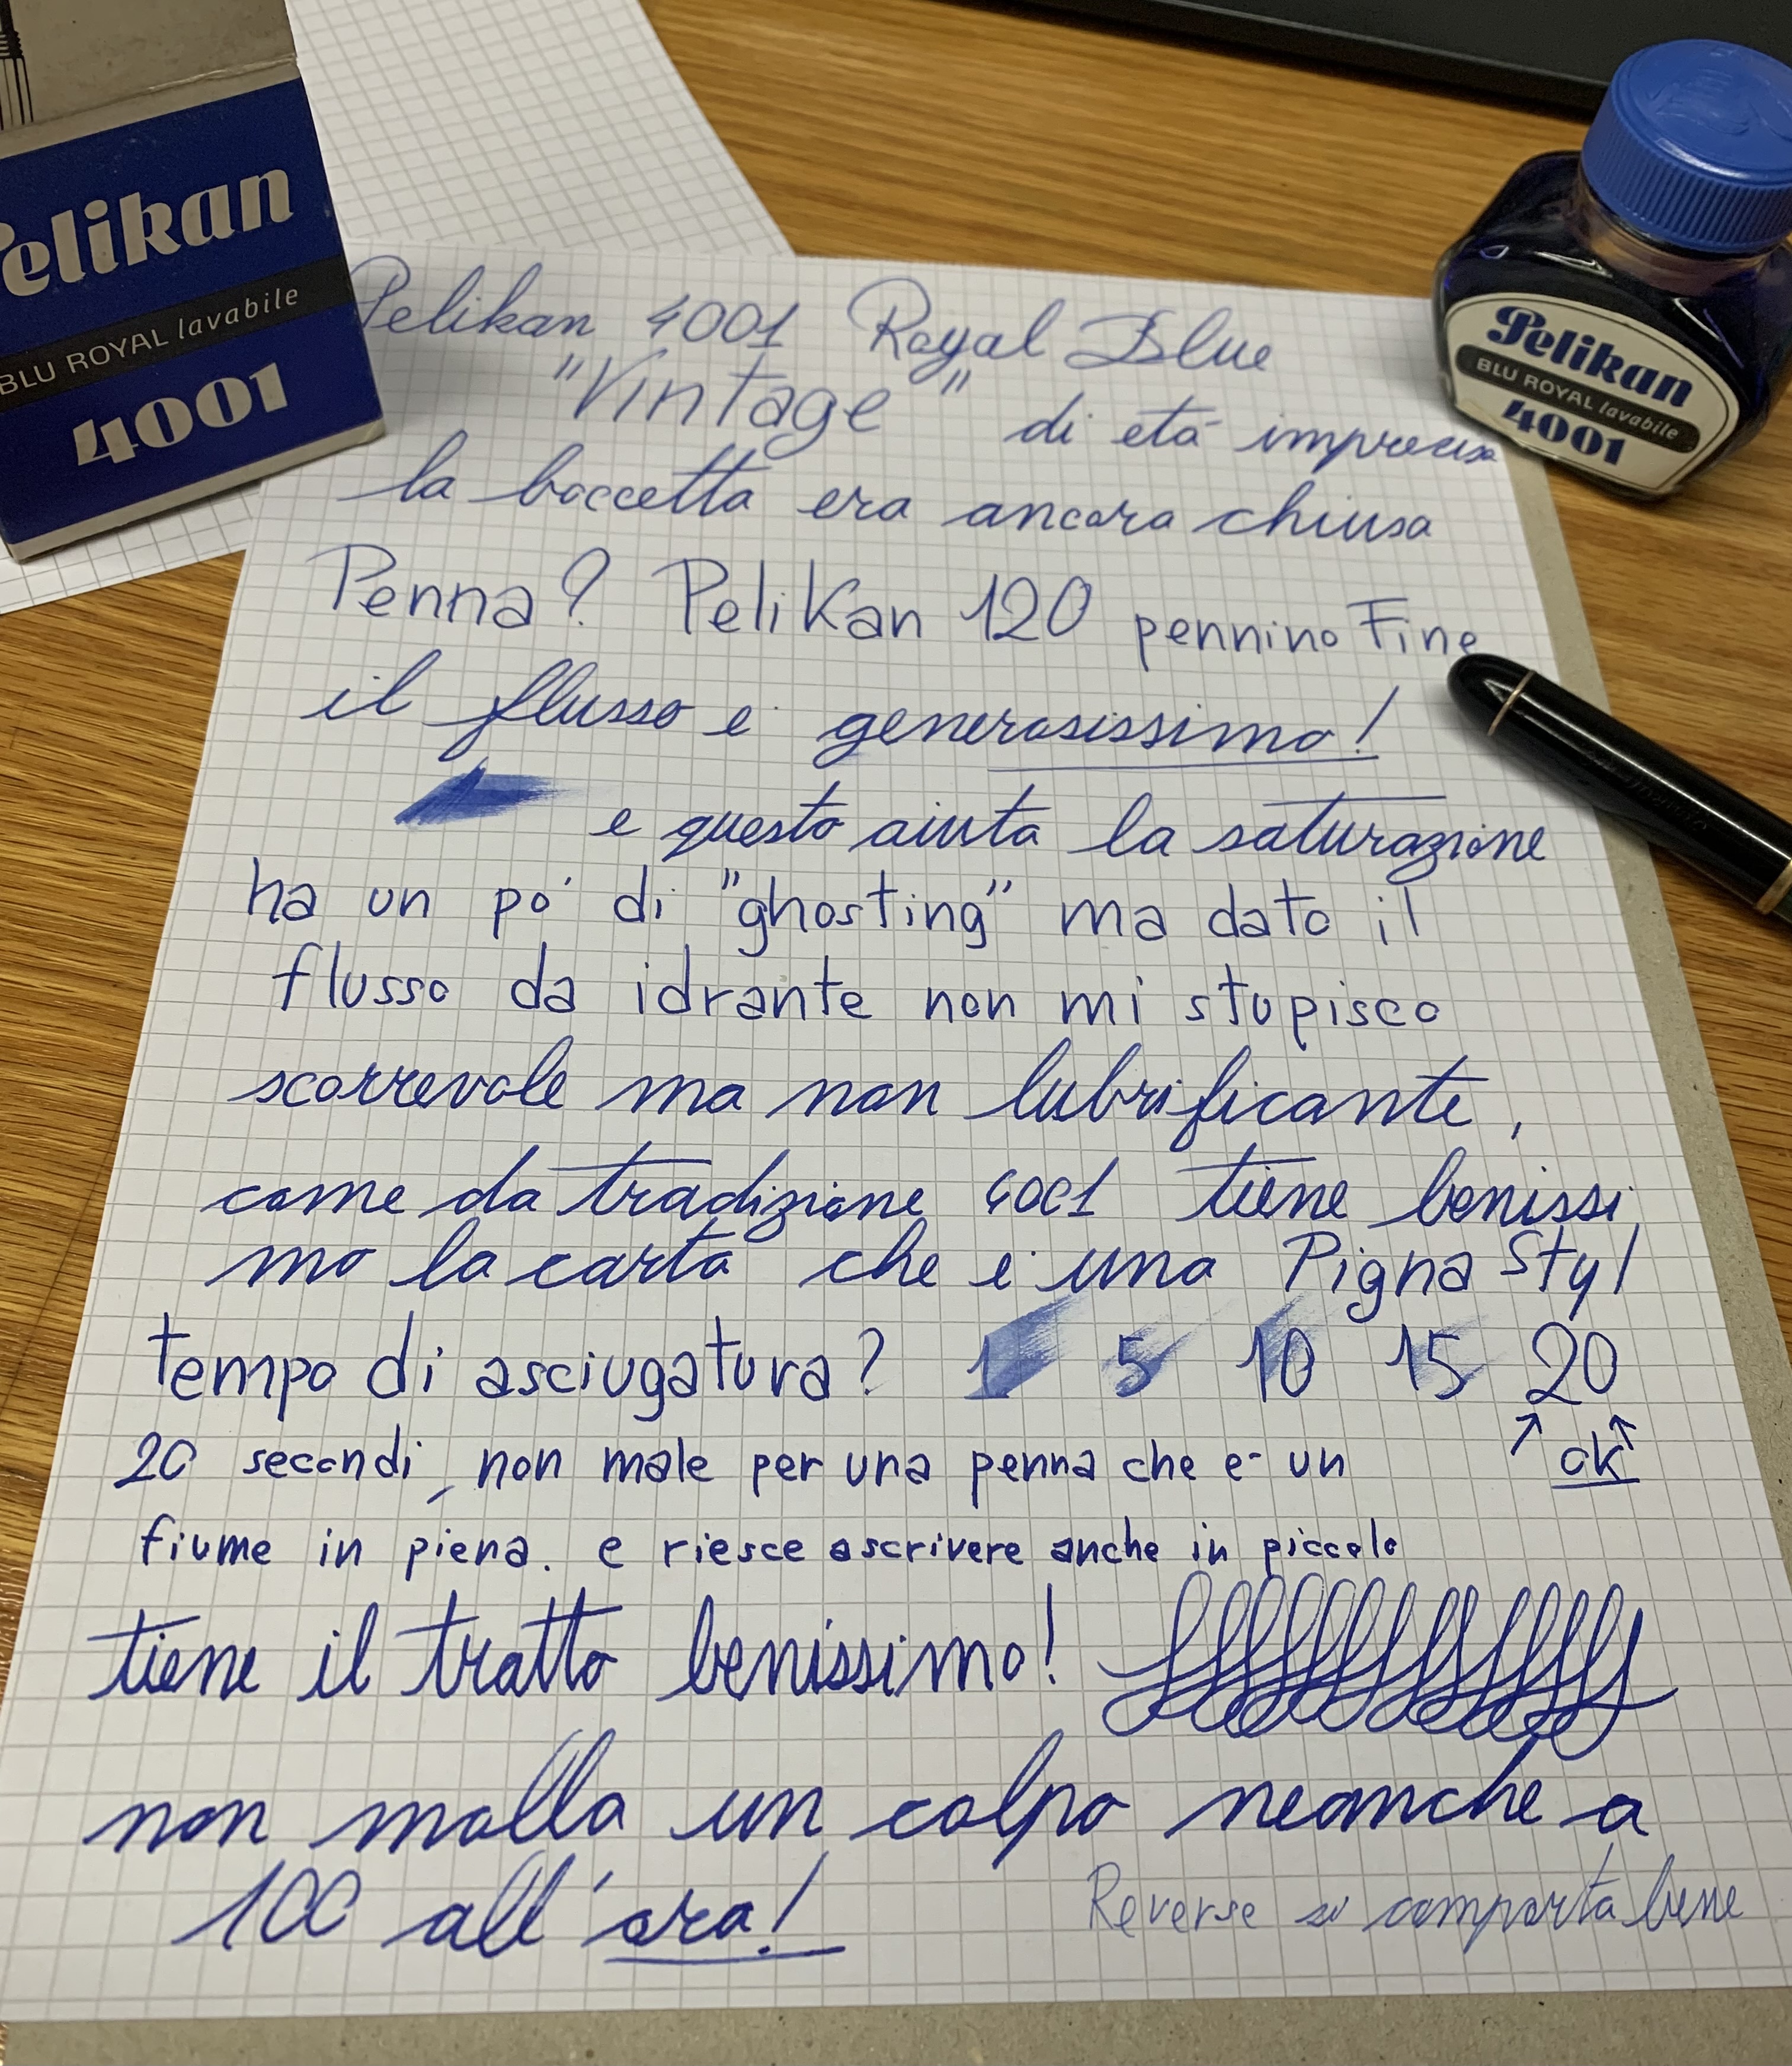 Pelikan
BLU ROYAL lavabile
4001
Pelikan
BLU ROYAL lavabile
4001
Pelikan 4001 Royal Blue
"Vintage" di età imprecisa
la boccetta era ancora chiusa
Penna? Pelikan 120 pennino Fine
il flusso è generosissimo!
e questo aiuta la saturazione
ha un pò di "ghosting" ma dato il
flusso da idrante non mi stupisco
scorrevole ma non lubrificante,
come da tradizione 4001 tiene benissi
mo la carta che è una Pigna Styl
tempo di asciugatura? 1 5 10 15 20
ok
20 secondi, non male per una penna che è un
fiume in piena. e riesce a scrivere anche in piccolo
tiene il tratto benissimo!
non molla un colpo neanche a
100 all'ora!
Reverse si comporta bene